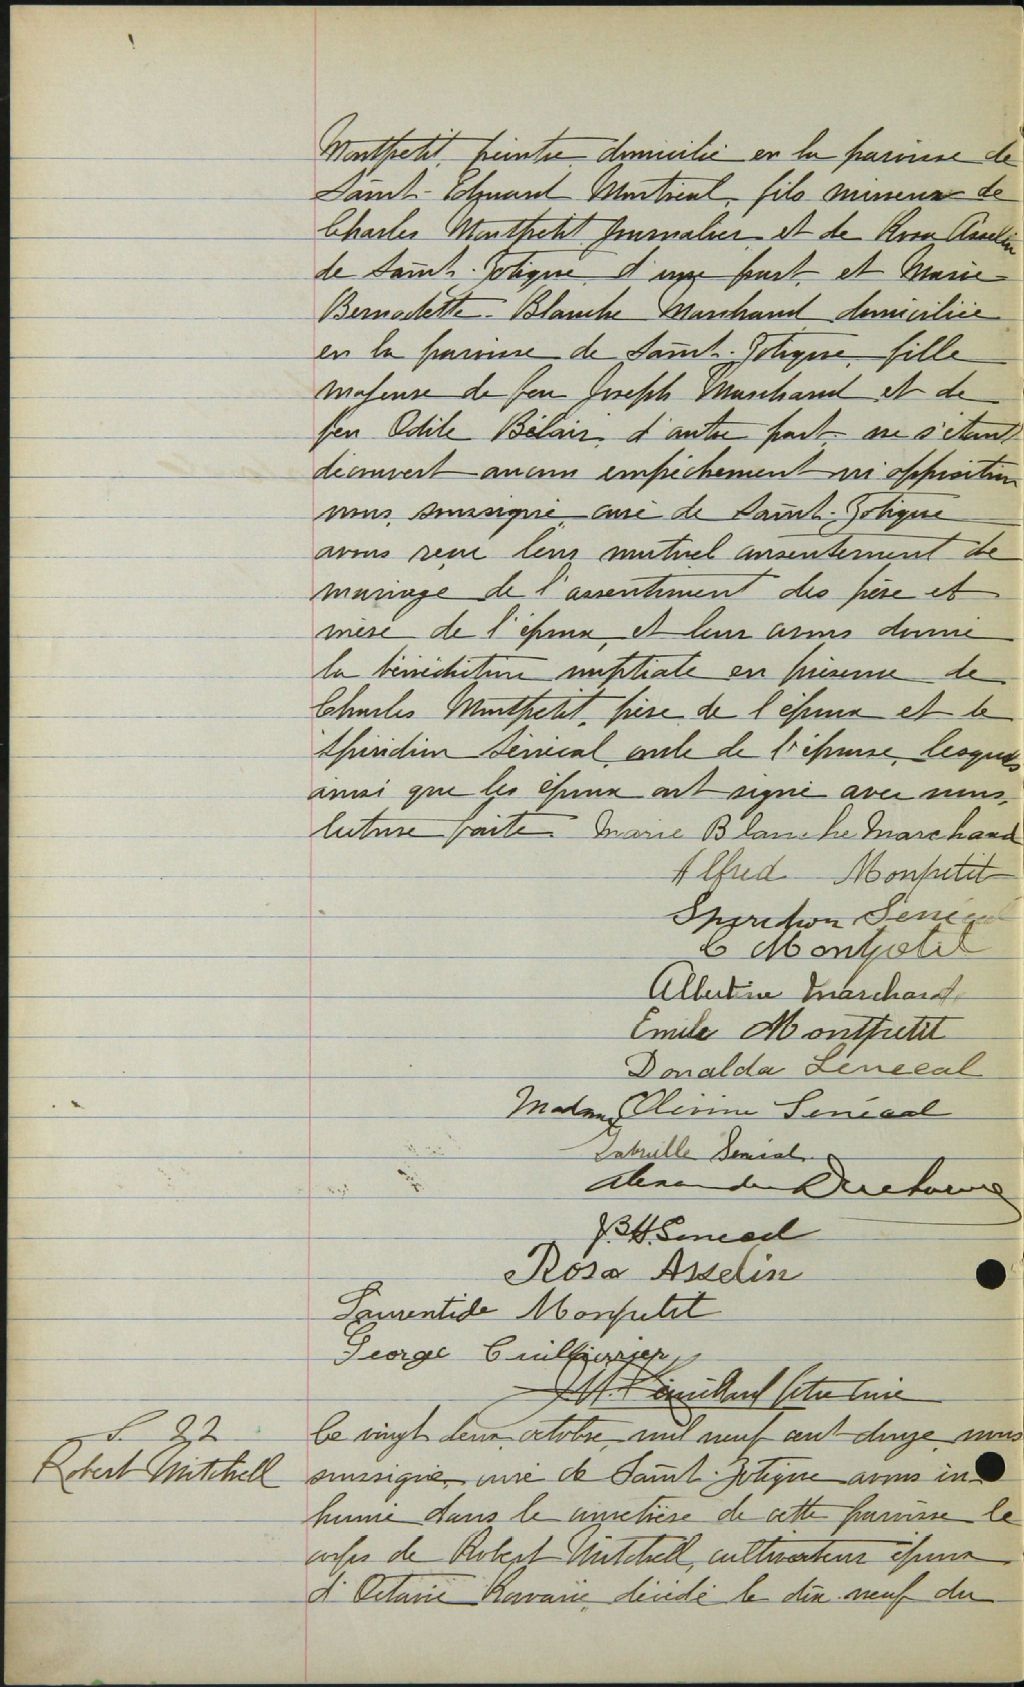 Montpetit, peintre, domicilié en la paroisse de
Saint-Edouard Montreal, fils mineur de
Charles Montpetit journalier et de Rosa Asselin
de Saint-Zotique, d'une part, et Marie-
Bernadette-Blanche Marchand domiciliée
en la paroisse de Saint-Zotique, fille
majeure de feu Joseph Marchand et de
feu Odile Bélair, d'autre part, ne s'étant
découvert aucun empêchement ni opposition
nous, soussigné, curé de Saint-Zotique
avons reçu leur mutuel consentement de
mariage de l'assentiment des père et
mère de l'époux, et leur avons donné
la bénédiction nuptiale en présence de
Charles Montpetit, père de l'époux et de
Spiridion Sénécal, oncle de l'épouse, lesquels
ainsi que les époux ont signé avec nous,
lecture faite. Marie Blanche Marchand
Alfred Monpetit
Spiridion Senécal
C Montpetit
Albertine Marchand
Emile Montpetit
Donalda Senecal
Madame Olivine Senécal
Gabrielle Senécal
Alexandre
J.B.H. Senecal
Rosa Asselin
Laurentide Monpetit
George Cuillierrier
Ptre Curé
S. 22
Robert Mitchell
Le vingt deux, octobre, mil neuf cent douze, nous
soussigné, curé de Saint-Zotique avons in-
humé dans le cimetière de cette paroisse le
corps de Robert Mitchell, cultivateur époux
d'Octavie décédé le dix-neuf du